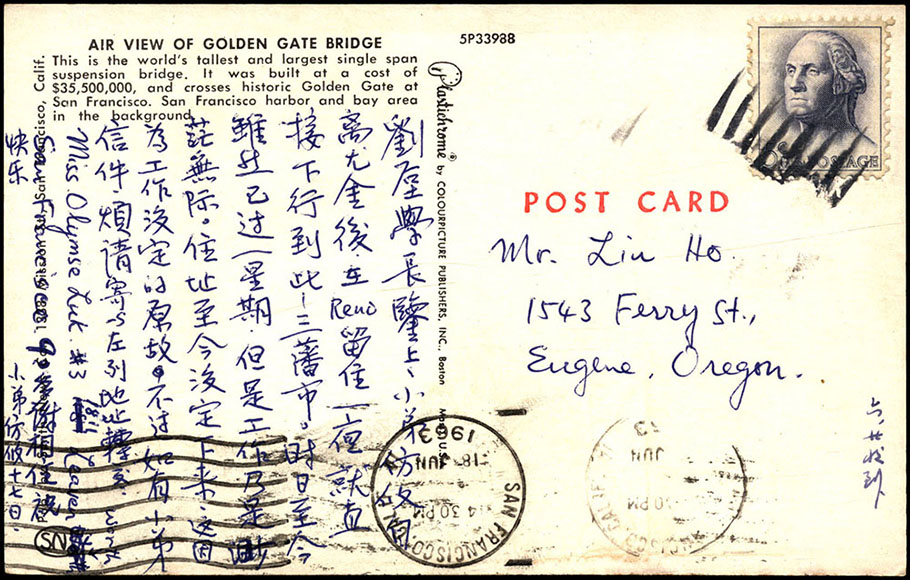 AIR VIEW OF GOLDEN GATE BRIDGE
This is the world's tallest and largest single span
suspension bridge. It was built at a cost of
$35,500,000, and crosses historic Golden Gate at
San Francisco. San Francisco harbor and bay area
in the background.
5P33988
Plastichrome® by COLOURPICTURE PUBLISHERS, INC., Boston
POST CARD
Mr. Liu Ho.
1543 Ferry St.,
Eugene, Oregon.
劉座學長鑒上、小弟方從自
離尤金後、在Reno留住一夜就直
接下行到此—三藩市。时日至今
雖然已过一星期 但是工作乃是渺
茫無际。住址至今沒定下来、这因
為工作沒定的原故。不过如有小弟
信件煩请寄以左列地址轉交
Miss. Olymse Luk. #3
San Francisco
快乐
十七日.
六廿收到
SAN FRANCISCO
JUN 18
4 30 PM
1963
POSTAGE
SN